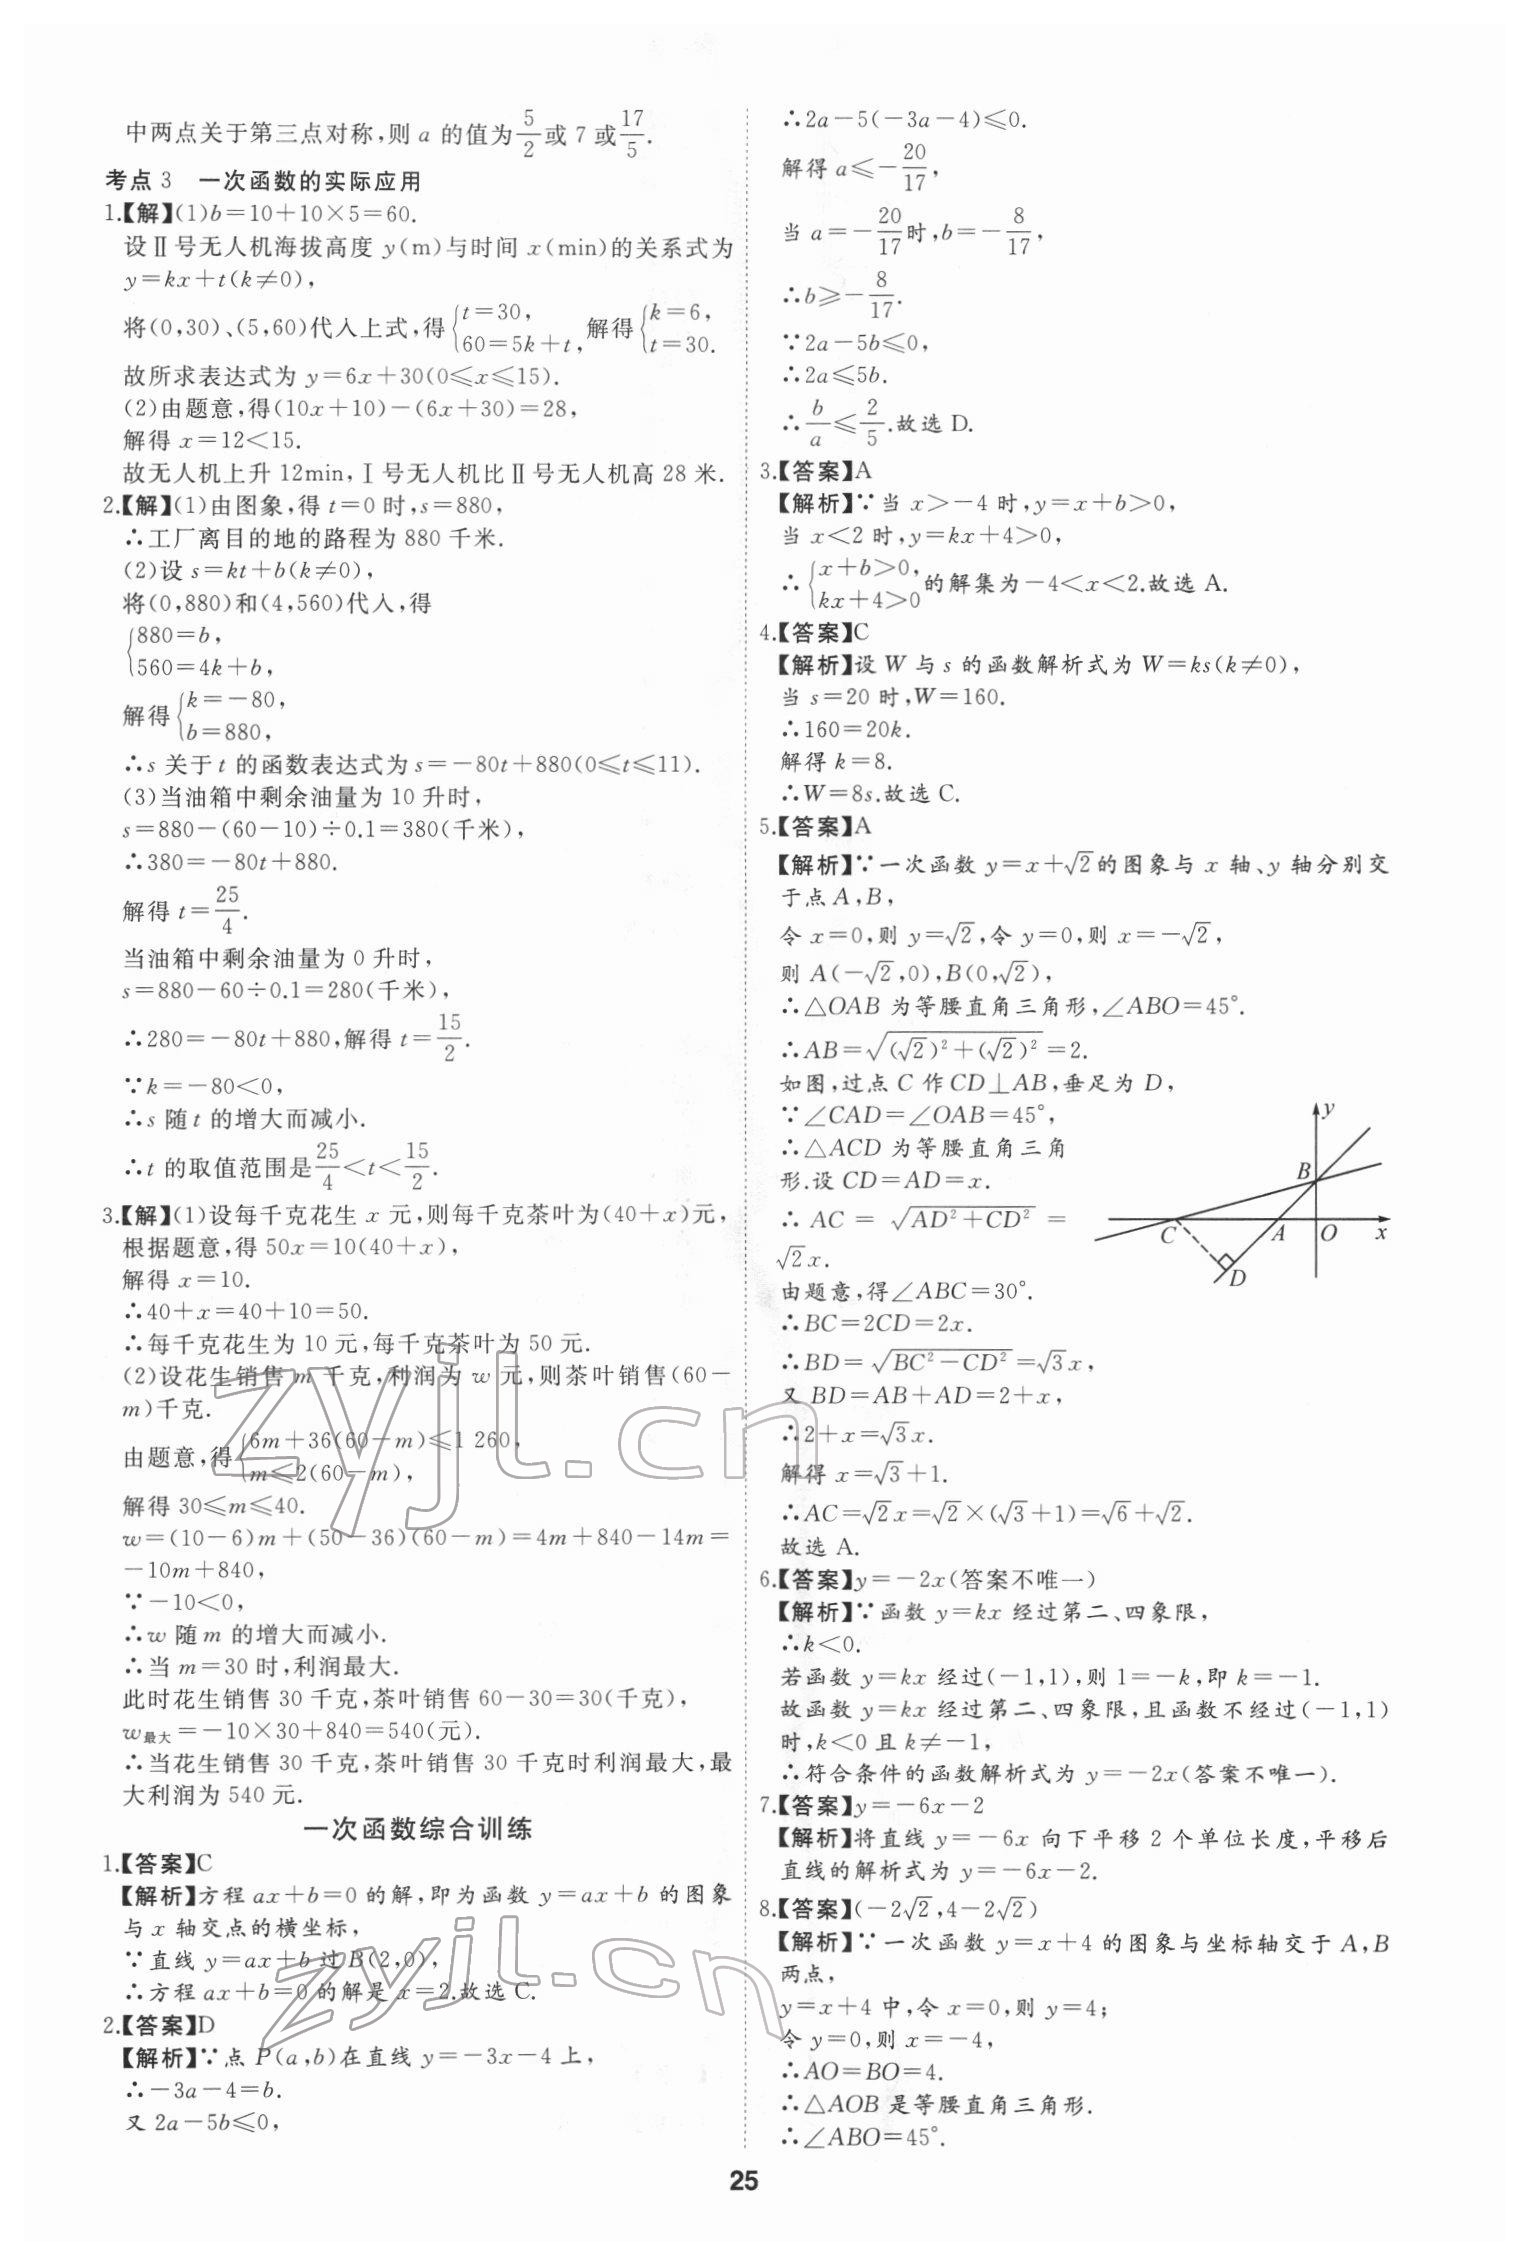 中两点关于第三点对称,则 a 的值为5/2或 7 或17/5.
考点 3　一次函数的实际应用
1.【解】(1)b=10+10×5=60.
设Ⅱ号无人机海拔高度 y(m)与时间 x(min)的关系式为
y=kx+t(k≠0),
将(0,30)、(5,60)代入上式,得{t=30, 60=5k+t, 解得{k=6, t=30.
故所求表达式为 y=6x+30(0≤x≤15).
(2)由题意,得(10x+10)-(6x+30)=28,
解得 x=12<15.
故无人机上升 12min,Ⅰ号无人机比Ⅱ号无人机高 28 米.
2.【解】(1)由图象,得 t=0 时,s=880,
∴工厂离目的地的路程为 880 千米.
(2)设 s=kt+b(k≠0),
将(0,880)和(4,560)代入,得
{880=b,
560=4k+b,
解得{k=-80, b=880,
∴s 关于 t 的函数表达式为 s=-80t+880(0≤t≤11).
(3)当油箱中剩余油量为 10 升时,
s=880-(60-10)÷0.1=380(千米),
∴380=-80t+880.
解得 t=25/4.
当油箱中剩余油量为 0 升时,
s=880-60÷0.1=280(千米),
∴280=-80t+880,解得 t=15/2.
∵k=-80<0,
∴s 随 t 的增大而减小.
∴t 的取值范围是25/4<t<15/2.
3.【解】(1)设每千克花生 x 元,则每千克茶叶为(40+x)元,
根据题意,得 50x=10(40+x),
解得 x=10.
∴40+x=40+10=50.
∴每千克花生为 10 元,每千克茶叶为 50 元.
(2)设花生销售 m 千克,利润为 w 元,则茶叶销售(60-
m)千克.
由题意,得{6m+36(60-m)≤1 260, m≤2(60-m),
解得 30≤m≤40.
w=(10-6)m+(50-36)(60-m)=4m+840-14m=
-10m+840,
∵-10<0,
∴w 随 m 的增大而减小.
∴当 m=30 时,利润最大.
此时花生销售 30 千克,茶叶销售 60-30=30(千克),
w最大=-10×30+840=540(元).
∴当花生销售 30 千克,茶叶销售 30 千克时利润最大,最
大利润为 540 元.
一次函数综合训练
1.【答案】C
【解析】方程 ax+b=0 的解,即为函数 y=ax+b 的图象
与 x 轴交点的横坐标,
∵直线 y=ax+b 过 B(2,0),
∴方程 ax+b=0 的解是 x=2.故选 C.
2.【答案】D
【解析】∵点 P(a,b)在直线 y=-3x-4 上,
∴-3a-4=b.
又 2a-5b≤0,
∴2a-5(-3a-4)≤0.
解得 a≤-20/17,
当 a=-20/17时,b=-8/17,
∴b≥-8/17.
∵2a-5b≤0,
∴2a≤5b.
∴b/a≤2/5.故选 D.
3.【答案】A
【解析】∵当 x>-4 时,y=x+b>0,
当 x<2 时,y=kx+4>0,
∴{x+b>0, kx+4>0 的解集为-4<x<2.故选 A.
4.【答案】C
【解析】设 W 与 s 的函数解析式为 W=ks(k≠0),
当 s=20 时,W=160.
∴160=20k.
解得 k=8.
∴W=8s.故选 C.
5.【答案】A
【解析】∵一次函数 y=x+√2的图象与 x 轴、y 轴分别交
于点 A,B,
令 x=0,则 y=√2,令 y=0,则 x=-√2,
则 A(-√2,0),B(0,√2),
∴△OAB 为等腰直角三角形,∠ABO=45°.
∴AB=√((√2)²+(√2)²)=2.
如图,过点 C 作 CD⊥AB,垂足为 D,
∵∠CAD=∠OAB=45°,
∴△ACD 为等腰直角三角
形.设 CD=AD=x.
∴AC=√(AD²+CD²)=
√2x.
由题意,得∠ABC=30°.
∴BC=2CD=2x.
∴BD=√(BC²-CD²)=√3x,
又 BD=AB+AD=2+x,
∴2+x=√3x.
解得 x=√3+1.
∴AC=√2x=√2×(√3+1)=√6+√2.
故选 A.
y
B
C A O x
D
6.【答案】y=-2x(答案不唯一)
【解析】∵函数 y=kx 经过第二、四象限,
∴k<0.
若函数 y=kx 经过(-1,1),则 1=-k,即 k=-1.
故函数 y=kx 经过第二、四象限,且函数不经过(-1,1)
时,k<0 且 k≠-1,
∴符合条件的函数解析式为 y=-2x(答案不唯一).
7.【答案】y=-6x-2
【解析】将直线 y=-6x 向下平移 2 个单位长度,平移后
直线的解析式为 y=-6x-2.
8.【答案】(-2√2,4-2√2)
【解析】∵一次函数 y=x+4 的图象与坐标轴交于 A,B
两点,
y=x+4 中,令 x=0,则 y=4;
令 y=0,则 x=-4,
∴AO=BO=4.
∴△AOB 是等腰直角三角形.
∴∠ABO=45°.
25
zyjl.cn
zyjl.cn